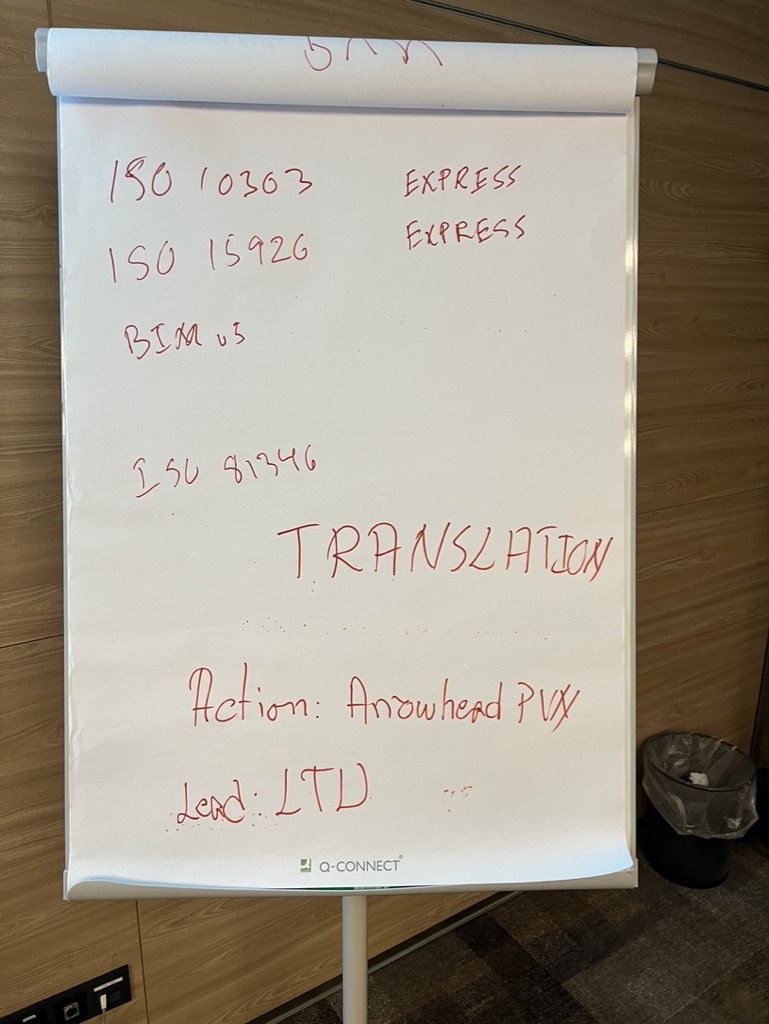 ISO 10303 EXPRESS
ISO 15926 EXPRESS
BIM v3
ISO 81346
TRANSLATION
Action: Arrowhead PVX
Lead: LTU
Q-CONNECT®